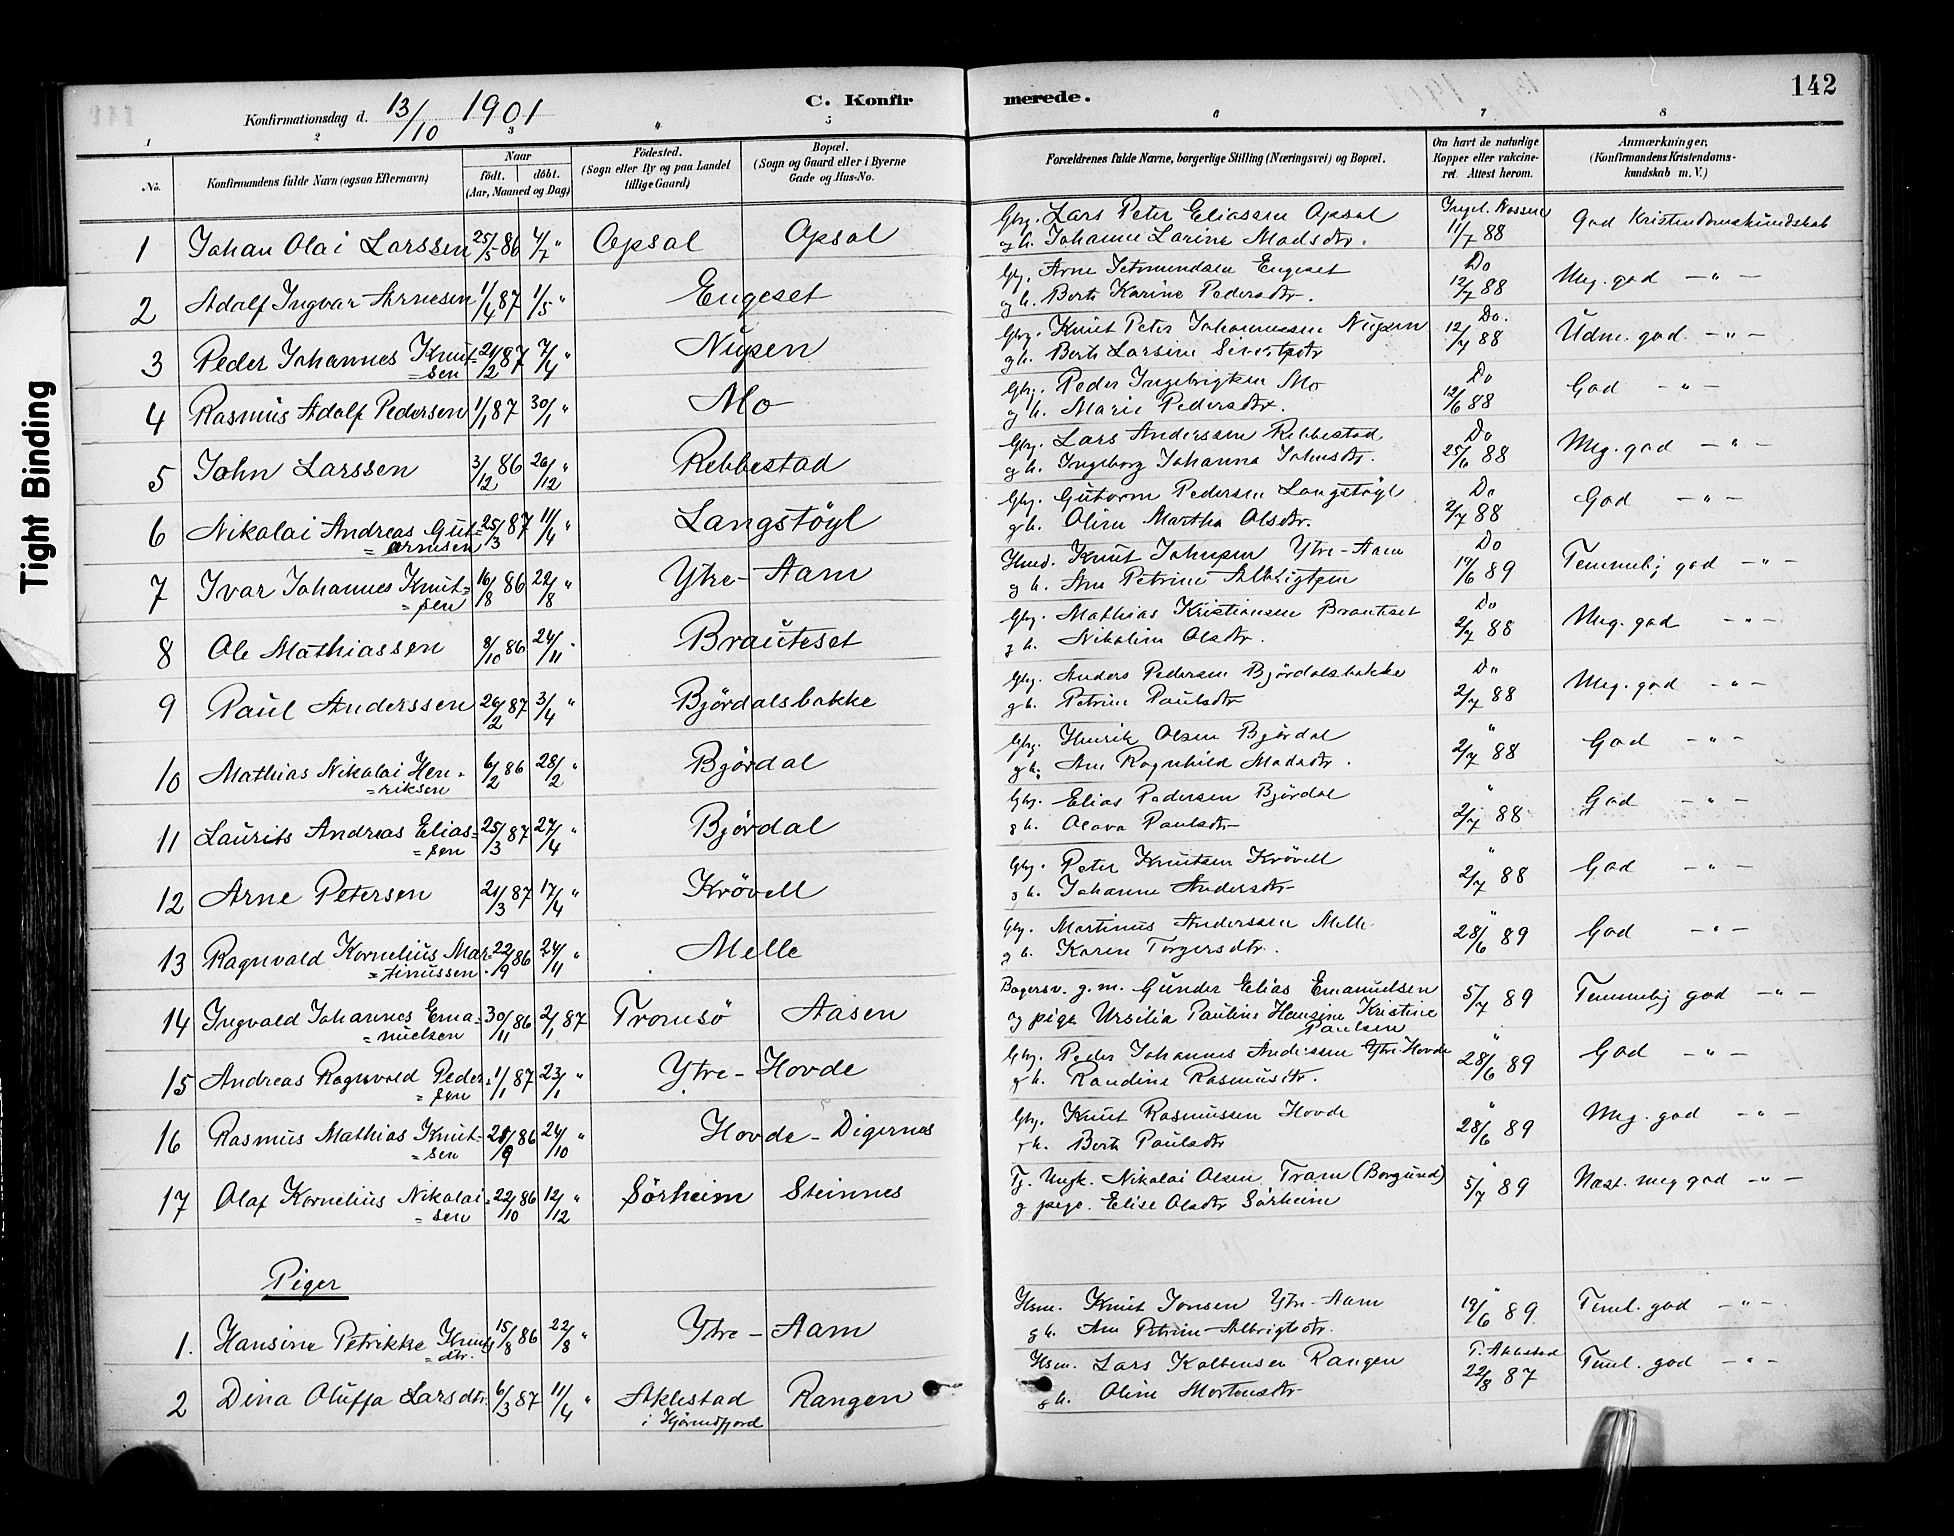 142
Konfirmationsdag d. 13/10 1901
C. Konfirmerede.
1 2 3 4 5 6 7 8
No.
Konfirmandens fulde Navn (ogsaa Efternavn)
Naar
født. døbt.
(Aar, Maaned og Dag)
Fødested.
(Sogn eller By og paa Landet
tillige Gaard)
Bopæl.
(Sogn og Gaard eller i Byerne
Gade og Hus-No.
Forældrenes fulde Navne, borgerlige Stilling (Næringsvei) og Bopæl.
Om havt de naturlige
Kopper eller vakcine-
ret. Attest herom.
Anmærkninger,
(Konfirmandens Kristendoms-
kundskab m. V.)
1 Johan Olai Larssen 25/5 86 4/7 " Opsal Opsal Gbr. Lars Peter Eliassen Opsal 11/7 88 God Kristendomskundskab
og h. Johanne Larine Madsdtr.
2 Adolf Ingvar Arnesen 1/4 87 1/5 " Engeset Gbr. Arne Engeset Do 12/7 88 Meg. god - " -
og h. Berte Karine Pedersdtr.
3 Peder Johannes Knut- 2/4 " Nupen Gbr. Knut Peter Johannessen Nupen Do. 12/7 88 Udm. god - " -
= sen g h. Berte Larsine
4 Rasmus Adolf Pedersen 1/1 87 30/1 " Mo Gbr. Peder Ingebrigtsen Mo Do 12/6 88 God - " -
og h. Marie Pedersdtr.
5 John Larssen 3/12 86 26/12 " Rebbestad Gbr. Lars Anderssen Rebbestad Do 25/6 88 Meg. god - " -
og h. Ingeborg Johanna Johnsdtr.
6 Nikolai Andreas Gut- 25/3 87 11/4 " Langstøyl Gbr. Gutorm Pedersen Langstøyl Do 2/7 88 God - " -
= ormsen g h. Oline Martha Olsdtr.
7 Ivar Johannes Knut= 16/8 86 22/8 " Ytre-Aam Knut Johnsen Ytre-Aam Do 19/6 89 Temmelig god - " -
= sen og h. Ane Petrine
8 Ole Mathiassen 8/10 86 24/11 " Brauteset Gbr. Mathias Kristiansen Brauteset Do 2/7 88 Meg. god - " -
g h. Nikoline Olsdtr.
9 Paul Anderssen 26/2 87 3/4 " Bjørdalsbakke Gbr. Anders Pedersen Bjørdalsbakke Do 2/7 88 Meg. god - " -
g h. Petrine Paulsdtr
10 Mathias Nikolai Hen- 6/2 86 28/2 " Bjørdal Gbr. Henrik Olsen Bjørdal " 2/7 88 God - " -
= riksen g h. Ane Ragnhild Madsdtr.
11 Laurits Andreas Elias- 25/3 87 27/4 " Bjørdal Gbr. Elias Pedersen Bjørdal " 2/7 88 God - " -
= sen g h. Olava Paulsdtr
12 Arne Petersen 21/3 87 17/4 " Krøvell Gbr. Peter Knutsen Krøvell " 2/7 88 God - " -
g h. Johanne Andersdtr
13 Ragnvald Kornelius Mar- 22/9 86 24/11 " Melle Gbr. Martinus Anderssen Melle " 28/6 89 God - " -
= tinussen g h. Karen Torgersdtr.
14 Ingvald Johannes Ema- 30/11 86 2/1 87 Tromsø Aasen Bagersv. g. m. Gunder Elias Emanuelsen 5/7 89 Temmelig god - " -
= nuelsen og pige Ursilia Pauline Hansine Kristine
Paulsen
15 Andreas Ragnvald Peder- 1/1 87 23/1 " Ytre-Hovde Gbr. Peder Johannes Anderssen Ytre Hovde " 28/6 89 God - " -
= sen g h. Randine Rasmusdtr.
16 Rasmus Mathias Knut- 86 24/10 " Hovde-Digernes Gbr. Knut Rasmussen Hovde " 28/6 89 Meg. god - " -
= sen g h. Berte Paulsdtr
17 Olaf Kornelius Nikolai- 22/10 86 12/12 " Sørheim Steinnes Tj. Ungk. Nikolai Olsen Tram (Borgund) " 5/7 89 Næst. meg god - " -
= sen g pige. Elise Olsdtr Sørheim
Piger
1. Hansine Petrikke Knuts 15/8 86 22/8 " Ytre-Aam Hsm. Knut Jonsen Ytre-Aam " 19/6 89 Teml. god - " -
= dtr. g h. Ane Petrine Albrigtsdtr.
2 Dina Oluffa Larsdtr. 6/3 87 11/4 " Aklestad Rangen Hsm. Lars Rangen 22/8 87 Teml. god - " -
i Hjørundfjord g h. Oline Mortensdtr
Tight Binding